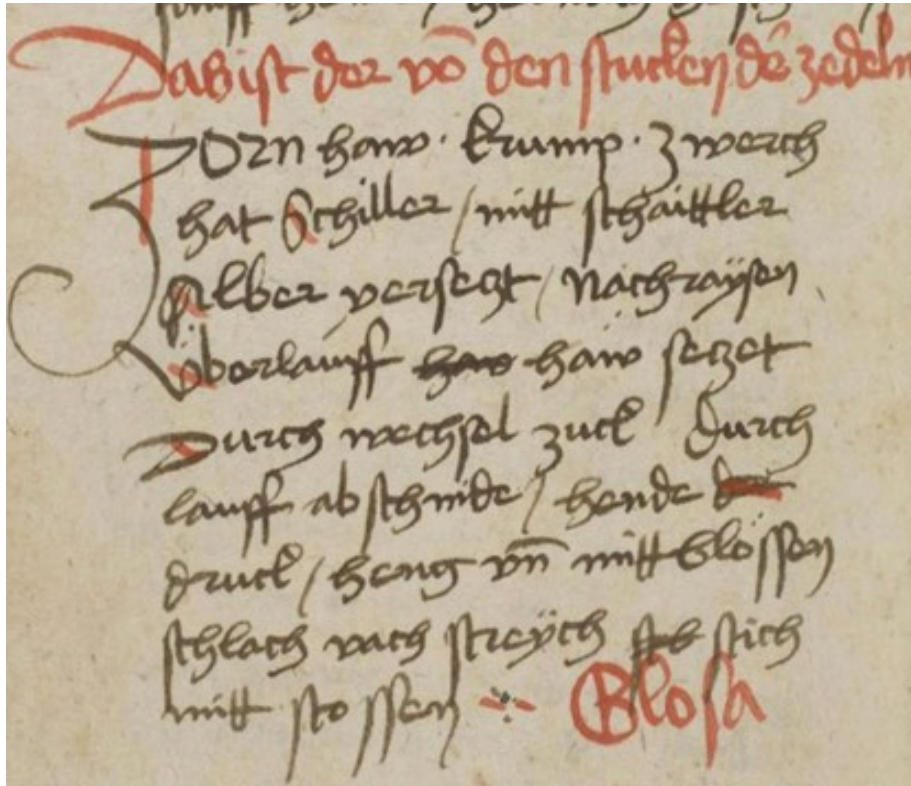 Das ist der vō den stucken der zedeln
Zorn haw · krump · zwerch
hat Schiller / mitt schaittler
alber versetzt / nachraÿsen
überlauff haw haiw setzet
Durch wechsel zuck durch
lauff ab schnide / hende de
druck / heng vn̄ mitt blössen
schlach vach streÿch stich
mitt sto ssen
Glosa